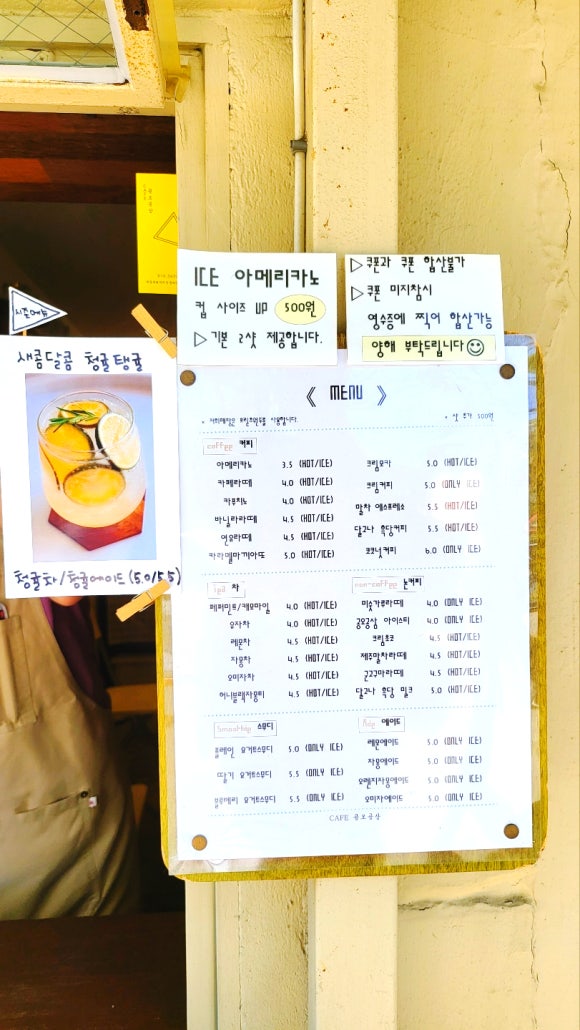 ICE 아메리카노
컵 사이즈 UP 500원
▷기본 2샷 제공합니다.
▷쿠폰과 쿠폰 합산불가
▷쿠폰 미지참시
영수증에 찍어 합산가능
양해 부탁드립니다
시즌메뉴
새콤달콤 청귤탱귤
청귤차/청귤에이드(5.0/5.5)
《 MENU 》
* 샷 추가 500원
coffee 커피
아메리카노 3.5 (HOT/ICE)
카페라떼 4.0 (HOT/ICE)
카푸치노 4.0 (HOT/ICE)
바닐라라떼 4.5 (HOT/ICE)
연유라떼 4.5 (HOT/ICE)
카라멜마끼아또 5.0 (HOT/ICE)
크림모카 5.0 (HOT/ICE)
크림커피 5.0 (ONLY ICE)
말차 에스프레소 5.5 (HOT/ICE)
달고나 흑당커피 5.5 (HOT/ICE)
코코넛커피 6.0 (ONLY ICE)
tea 차
페퍼민트/캐모마일 4.0 (HOT/ICE)
유자차 4.0 (HOT/ICE)
레몬차 4.5 (HOT/ICE)
자몽차 4.5 (HOT/ICE)
오미자차 4.5 (HOT/ICE)
허니블랙자몽티 4.5 (HOT/ICE)
non-coffee 논커피
미숫가루라떼 4.0 (ONLY ICE)
공용공삼 아이스티 4.0 (ONLY ICE)
크림초코 4.5 (HOT/ICE)
제주말차라떼 4.5 (HOT/ICE)
군고구마라떼 4.5 (HOT/ICE)
달고나 흑당 밀크 5.0 (HOT/ICE)
Smoothie 스무디
플레인 요거트스무디 5.0 (ONLY ICE)
딸기 요거트스무디 5.5 (ONLY ICE)
블루베리 요거트스무디 5.5 (ONLY ICE)
Ade 에이드
레몬에이드 5.0 (ONLY ICE)
자몽에이드 5.0 (ONLY ICE)
오렌지자몽에이드 5.0 (ONLY ICE)
오미자에이드 5.0 (ONLY ICE)
CAFE 공보공삼